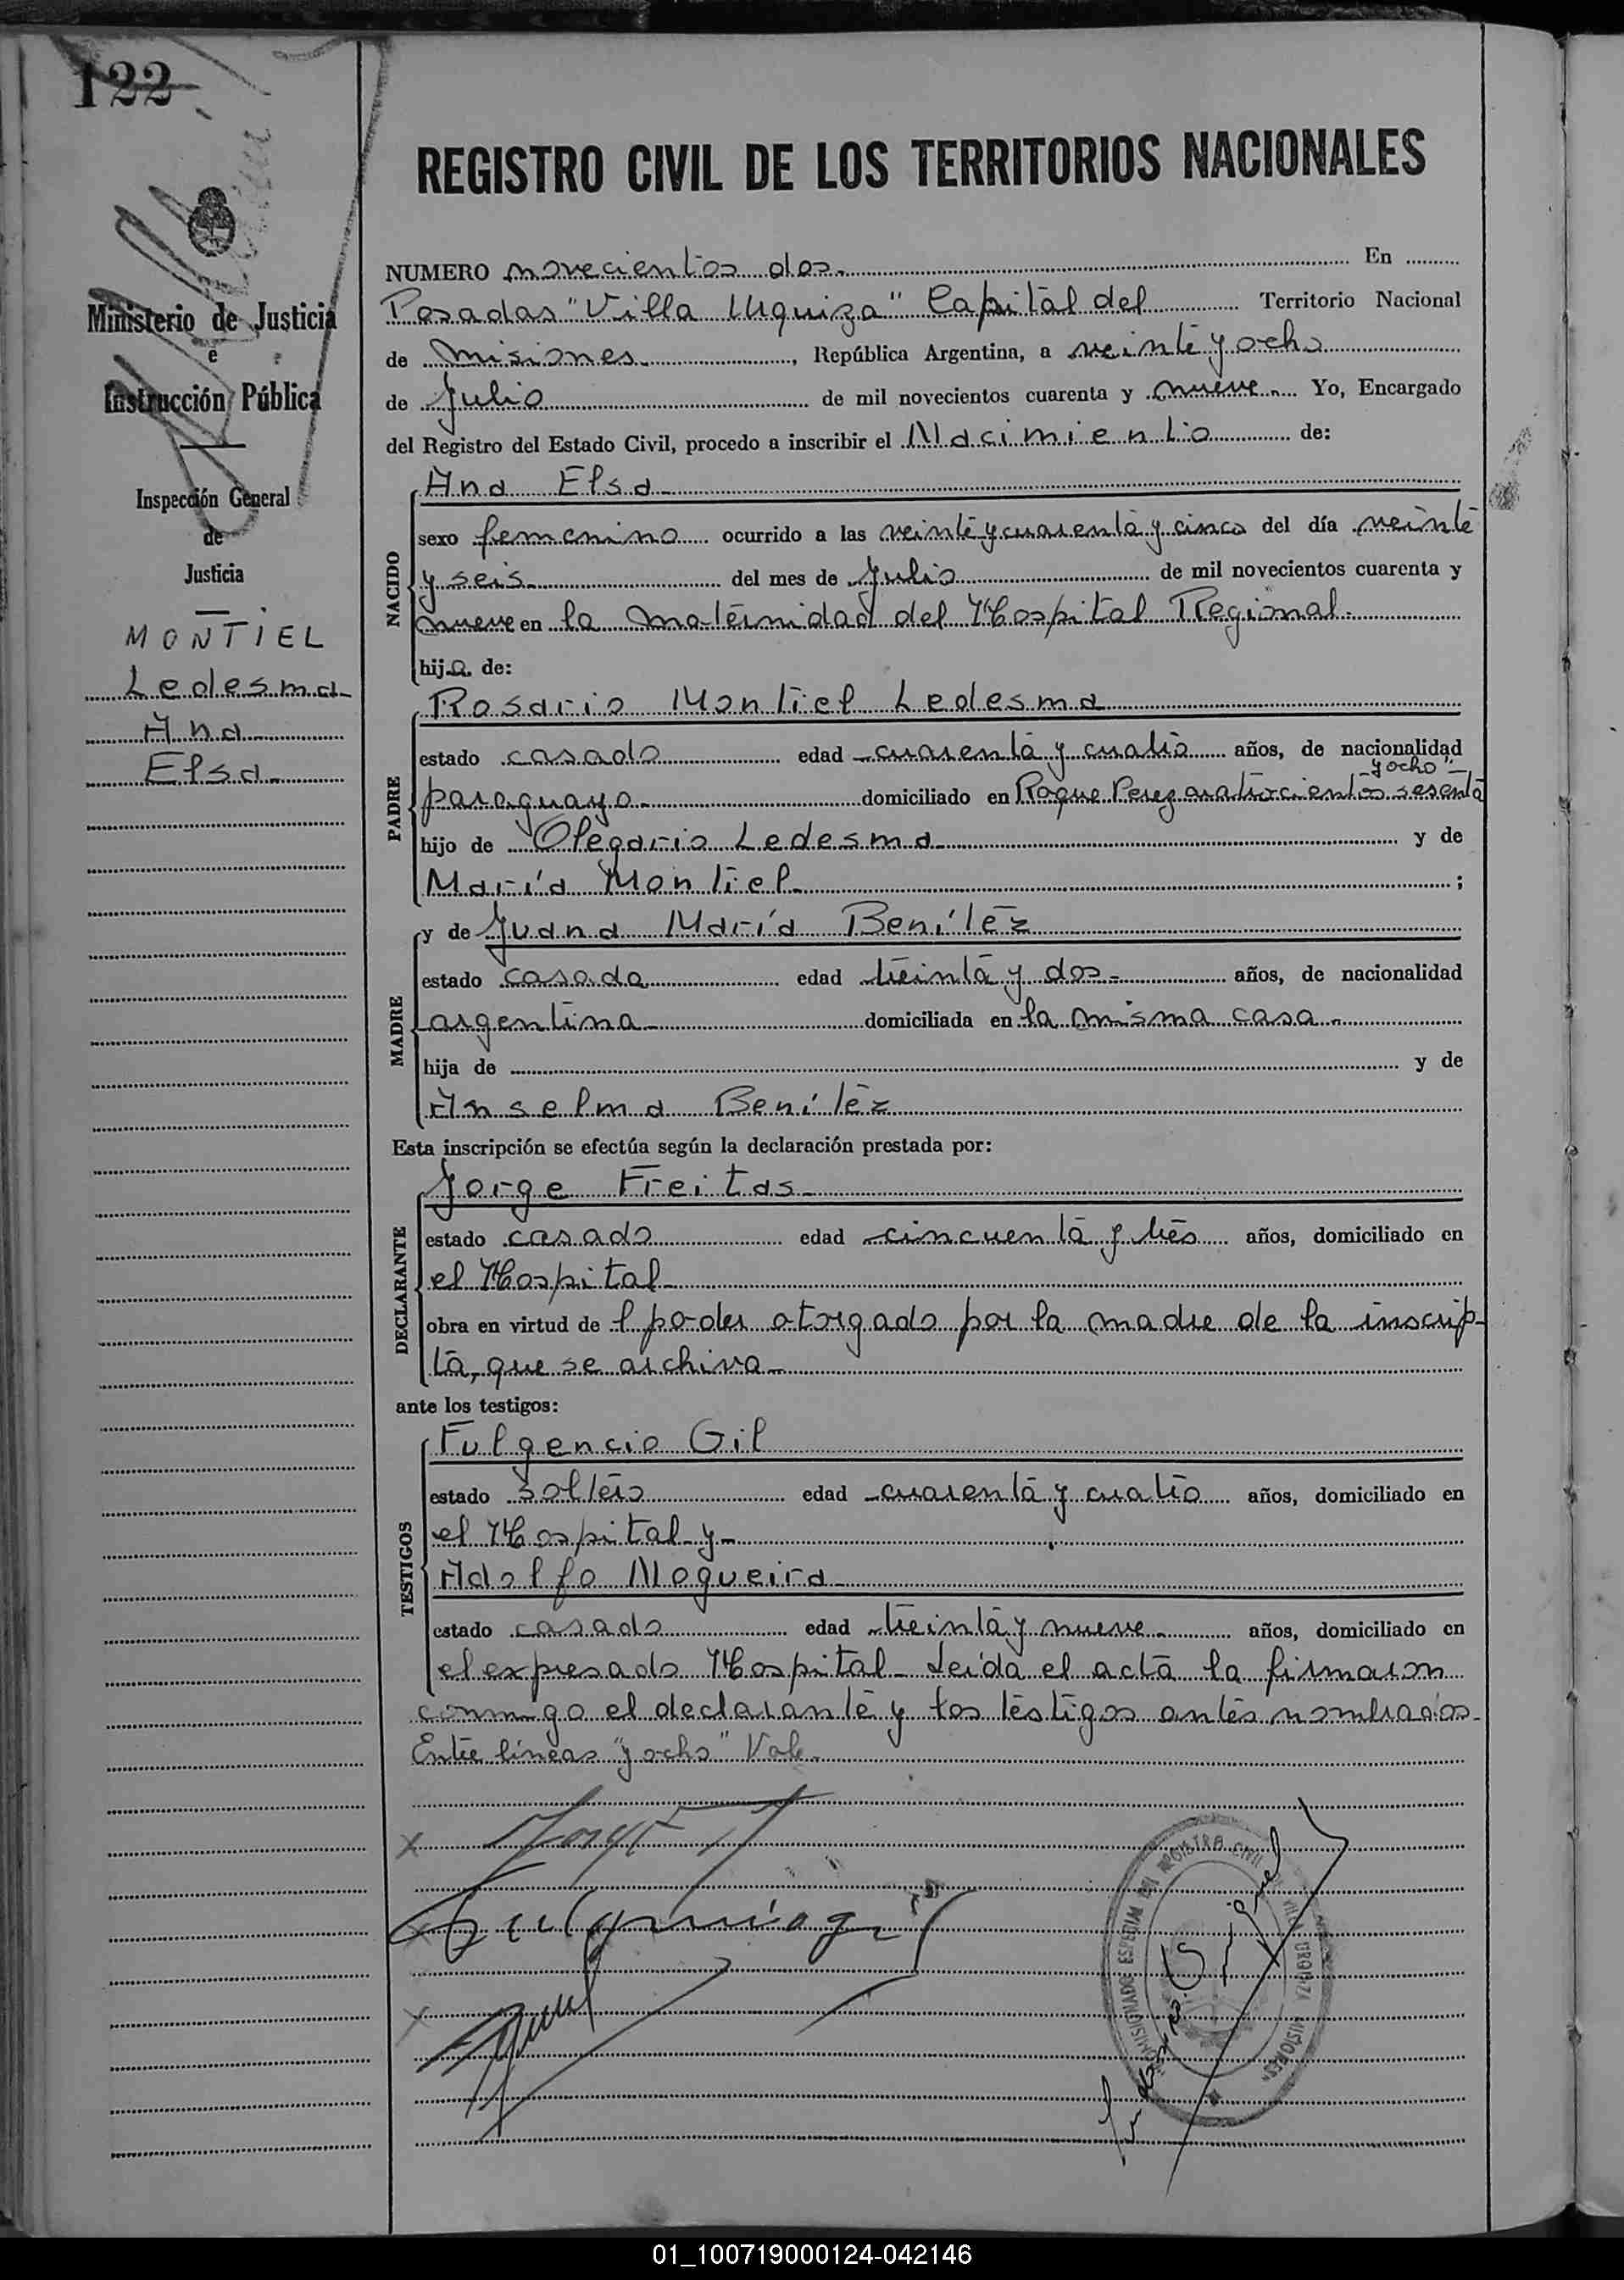 122
REGISTRO CIVIL DE LOS TERRITORIOS NACIONALES
Ministerio de Justicia
e
Instrucción Pública
Inspección General
de
Justicia
MONTIEL
Ledesma
Ana
Elsa
NUMERO novecientos dos. En
Posadas "Villa Urquiza" Capital del Territorio Nacional
de Misiones, República Argentina, a veinte y ocho
de Julio de mil novecientos cuarenta y nueve. Yo, Encargado
del Registro del Estado Civil, procedo a inscribir el Nacimiento de:
NACIDO
Ana Elsa
sexo femenino ocurrido a las veinte y cuarenta y cinco del día veinte
y seis del mes de Julio de mil novecientos cuarenta y
nueve en la maternidad del Hospital Regional.
hija de:
PADRE
Rosario Montiel Ledesma
estado casado edad cuarenta y cuatro años, de nacionalidad
y ocho
paraguayo domiciliado en Roque Perez cuatrocientos sesenta
hijo de Olegario Ledesma y de
María Montiel ;
MADRE
y de Juana María Benítez
estado casada edad treinta y dos años, de nacionalidad
argentina domiciliada en la misma casa
hija de y de
Anselma Benítez
Esta inscripción se efectúa según la declaración prestada por:
DECLARANTE
Jorge Freitas
estado casado edad cincuenta y tres años, domiciliado en
el Hospital
obra en virtud de l poder otorgado por la madre de la inscrip-
ta, que se archiva
ante los testigos:
TESTIGOS
Fulgencio Gil
estado soltero edad cuarenta y cuatro años, domiciliado en
el Hospital y
Adolfo Nogueira
estado casado edad treinta y nueve años, domiciliado en
el expresado Hospital. Leída el acta la firmaron
conmigo el declarante y los testigos antes nombrados.
Entre líneas "y ocho" Vale.
COMISIONADO ESPECIAL DEL REGISTRO CIVIL VILLA URQUIZA MISIONES
01_100719000124-042146